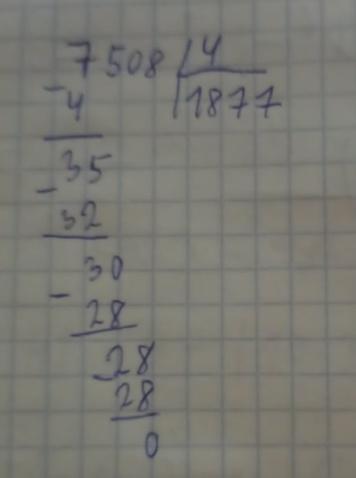 7508 | 4
- 4 | 1877
35
- 32
30
- 28
28
- 28
0